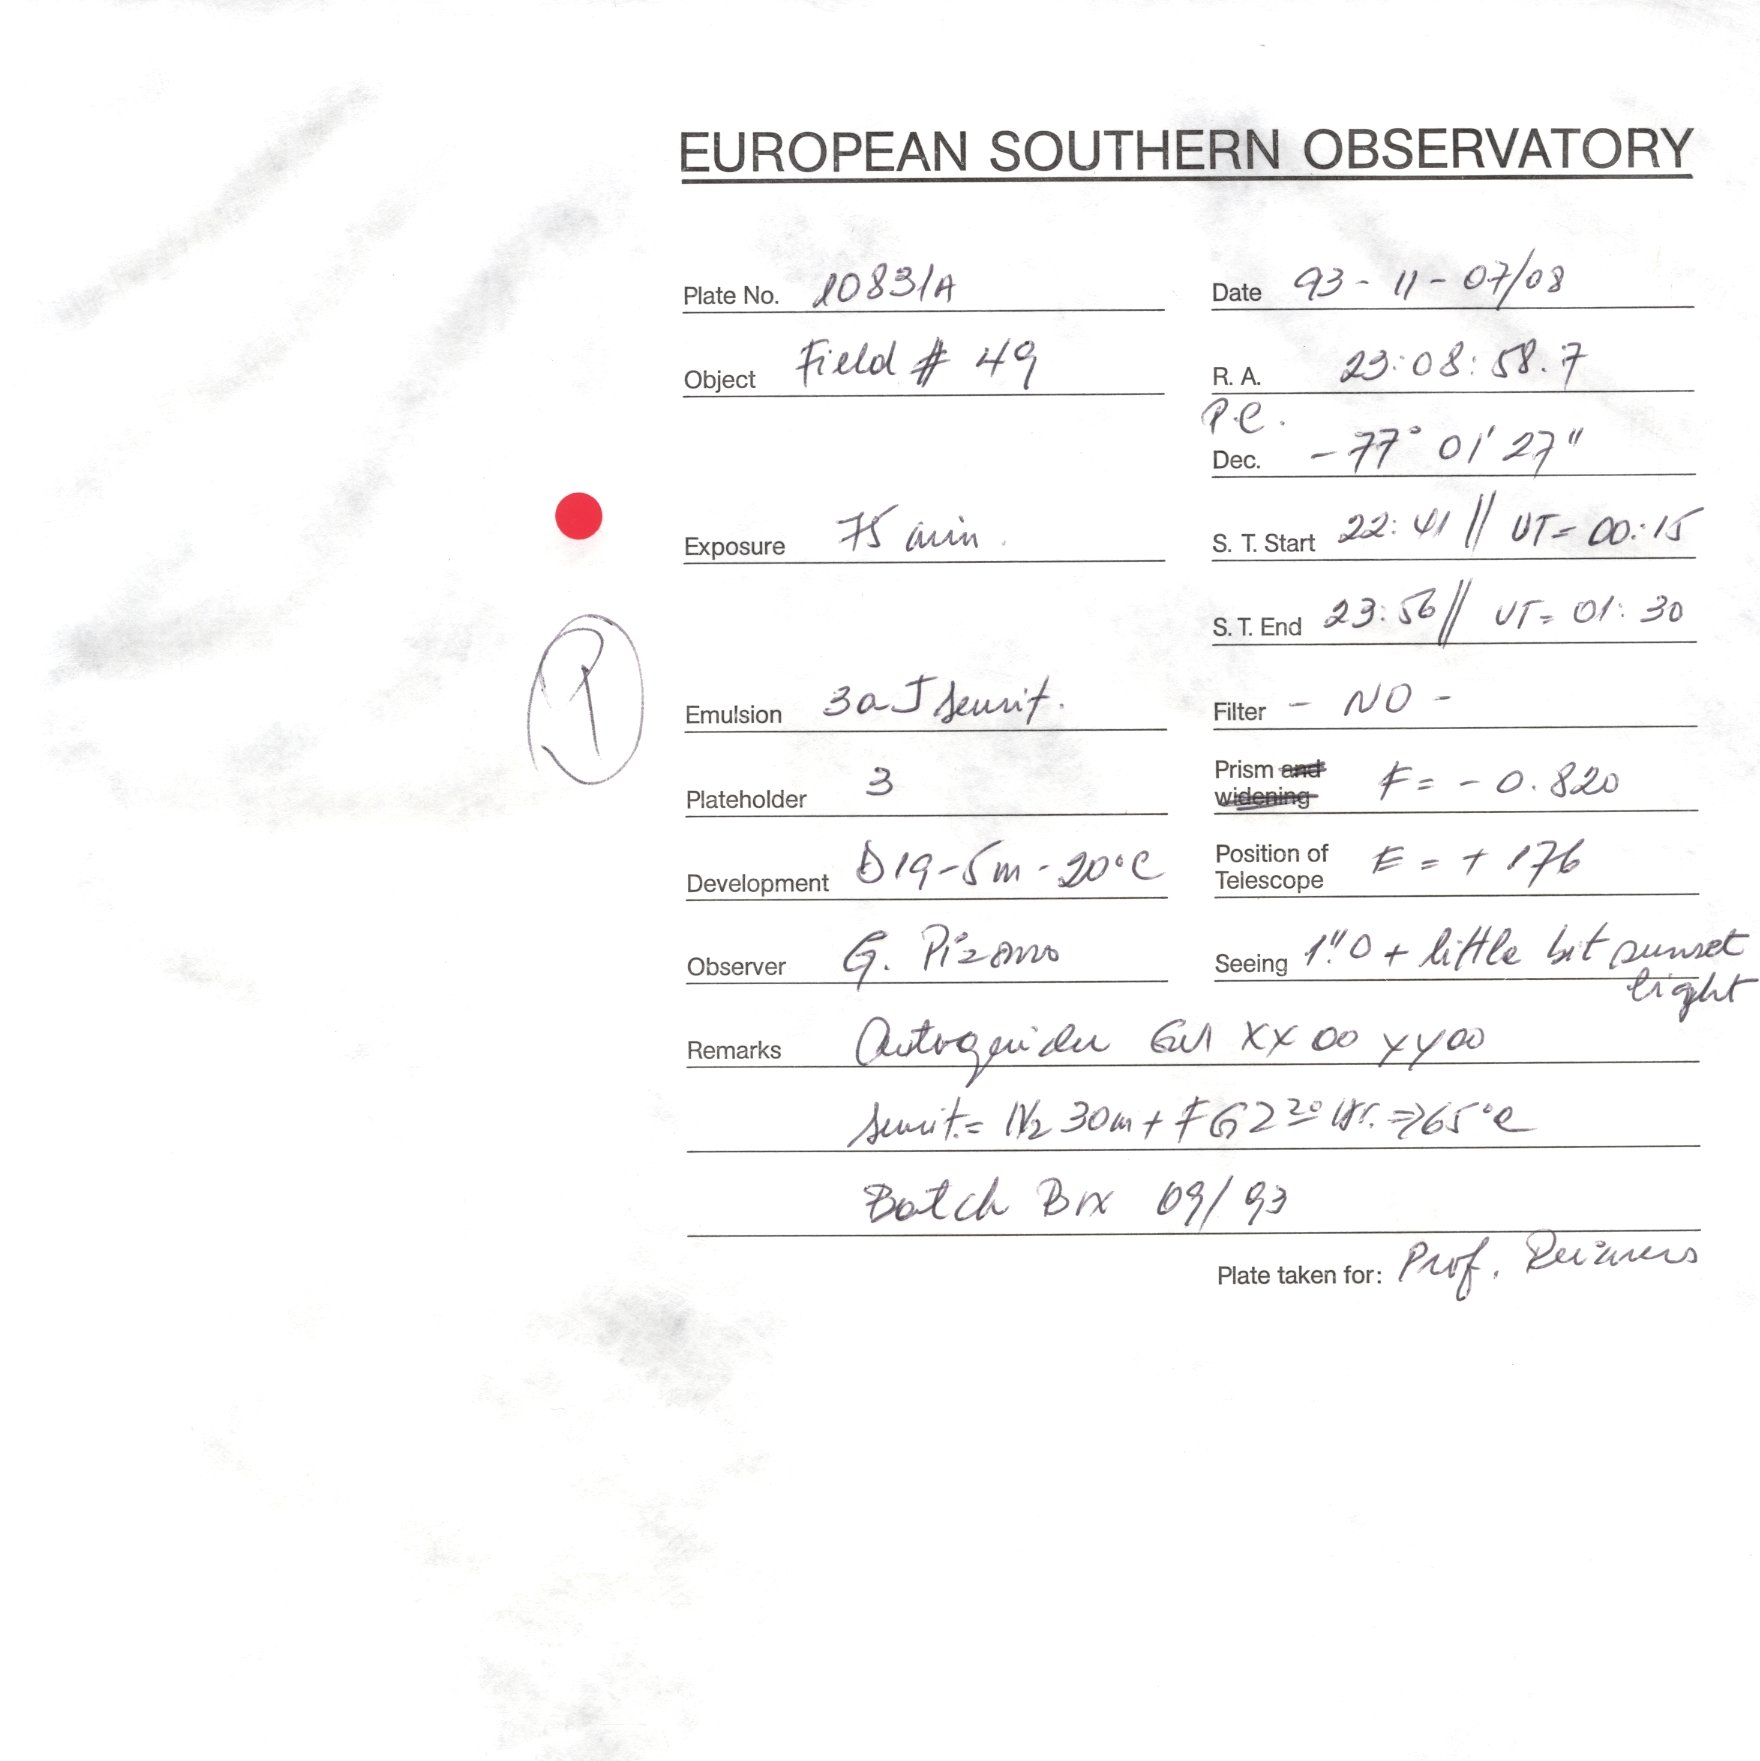 EUROPEAN SOUTHERN OBSERVATORY
Plate No. 10831A
Date 93 - 11 - 07/08
Object Field # 49
R. A. 23:08:58.7
P.C.
Dec. - 77° 01' 27"
Exposure 75 min.
S. T. Start 22:41 // UT= 00:15
S. T. End 23:56 // UT= 01:30
Emulsion 3a-J sensit.
Filter - NO -
Plateholder 3
Prism and widening F = - 0.820
Development D19-5m-20°C
Position of Telescope E = + 176
Observer G. Pizarro
Seeing 1".0 + little bit sunset
light
Remarks Autoguider XX 00 YY 00
Sensit.= N2 30m + FG2 20 Hr. => 65°C
Batch Box 09/93
Plate taken for: Prof. Reimers